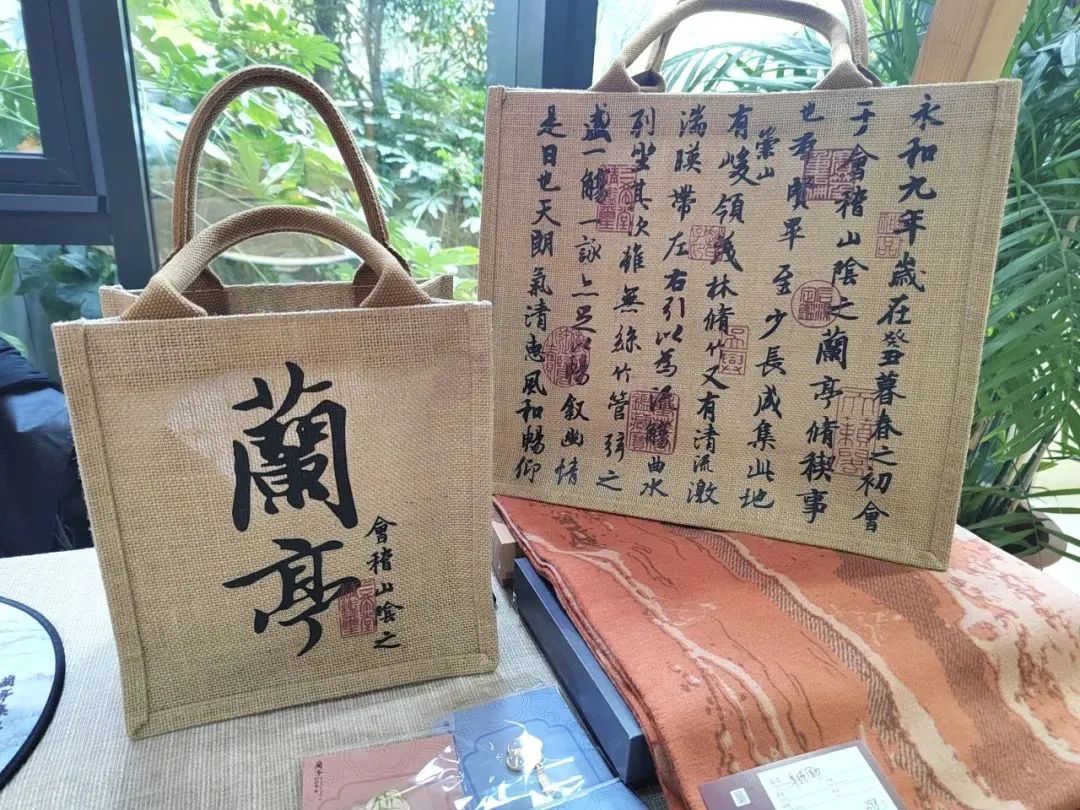 蘭亭
會稽山陰之
永和九年歲在癸丑暮春之初會
于會稽山陰之蘭亭脩稧事
也羣賢畢至少長咸集此地
有崇山峻領茂林脩竹又有清流激
湍暎帶左右引以為流觴曲水
列坐其次雖無絲竹管弦之
盛一觴一詠亦足以暢叙幽情
是日也天朗氣清惠風和暢仰
蘭亭
蘭亭